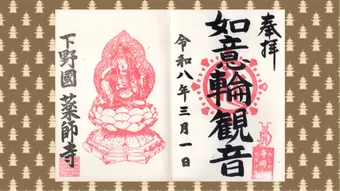 奉拝
如意輪観音
令和八年三月一日
下野國 薬師寺